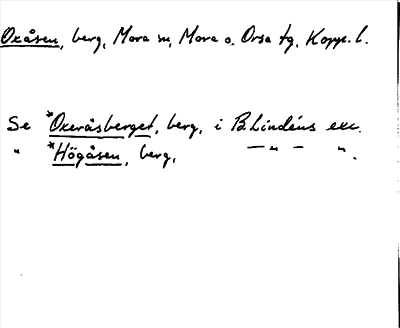 Oxåsen, berg, Mora sn, Mora o. Orsa tg, Kopp. l.
Se *Oxeråsberget, berg, i B. Lindéns exc.
" *Högåsen, berg, —"— ".